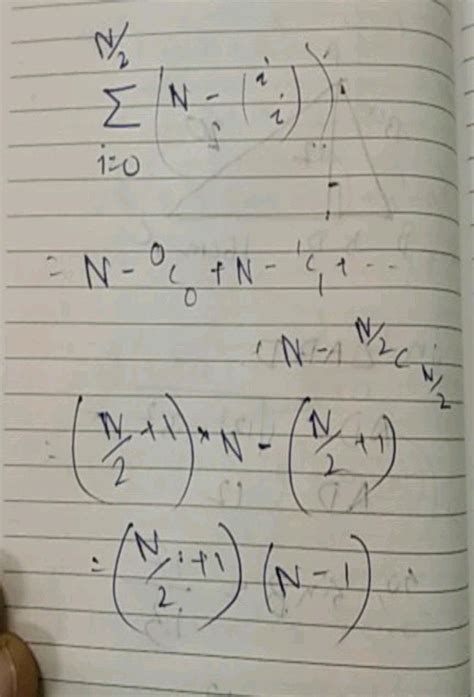 N/2
∑ (N - (i i))
i=0
= N - ⁰C₀ + N - ¹C₁ + ---
+ N - ^{N/2}C_{N/2}
= (N/2 + 1) * N - (N/2 + 1)
= (N/2 + 1) (N - 1)